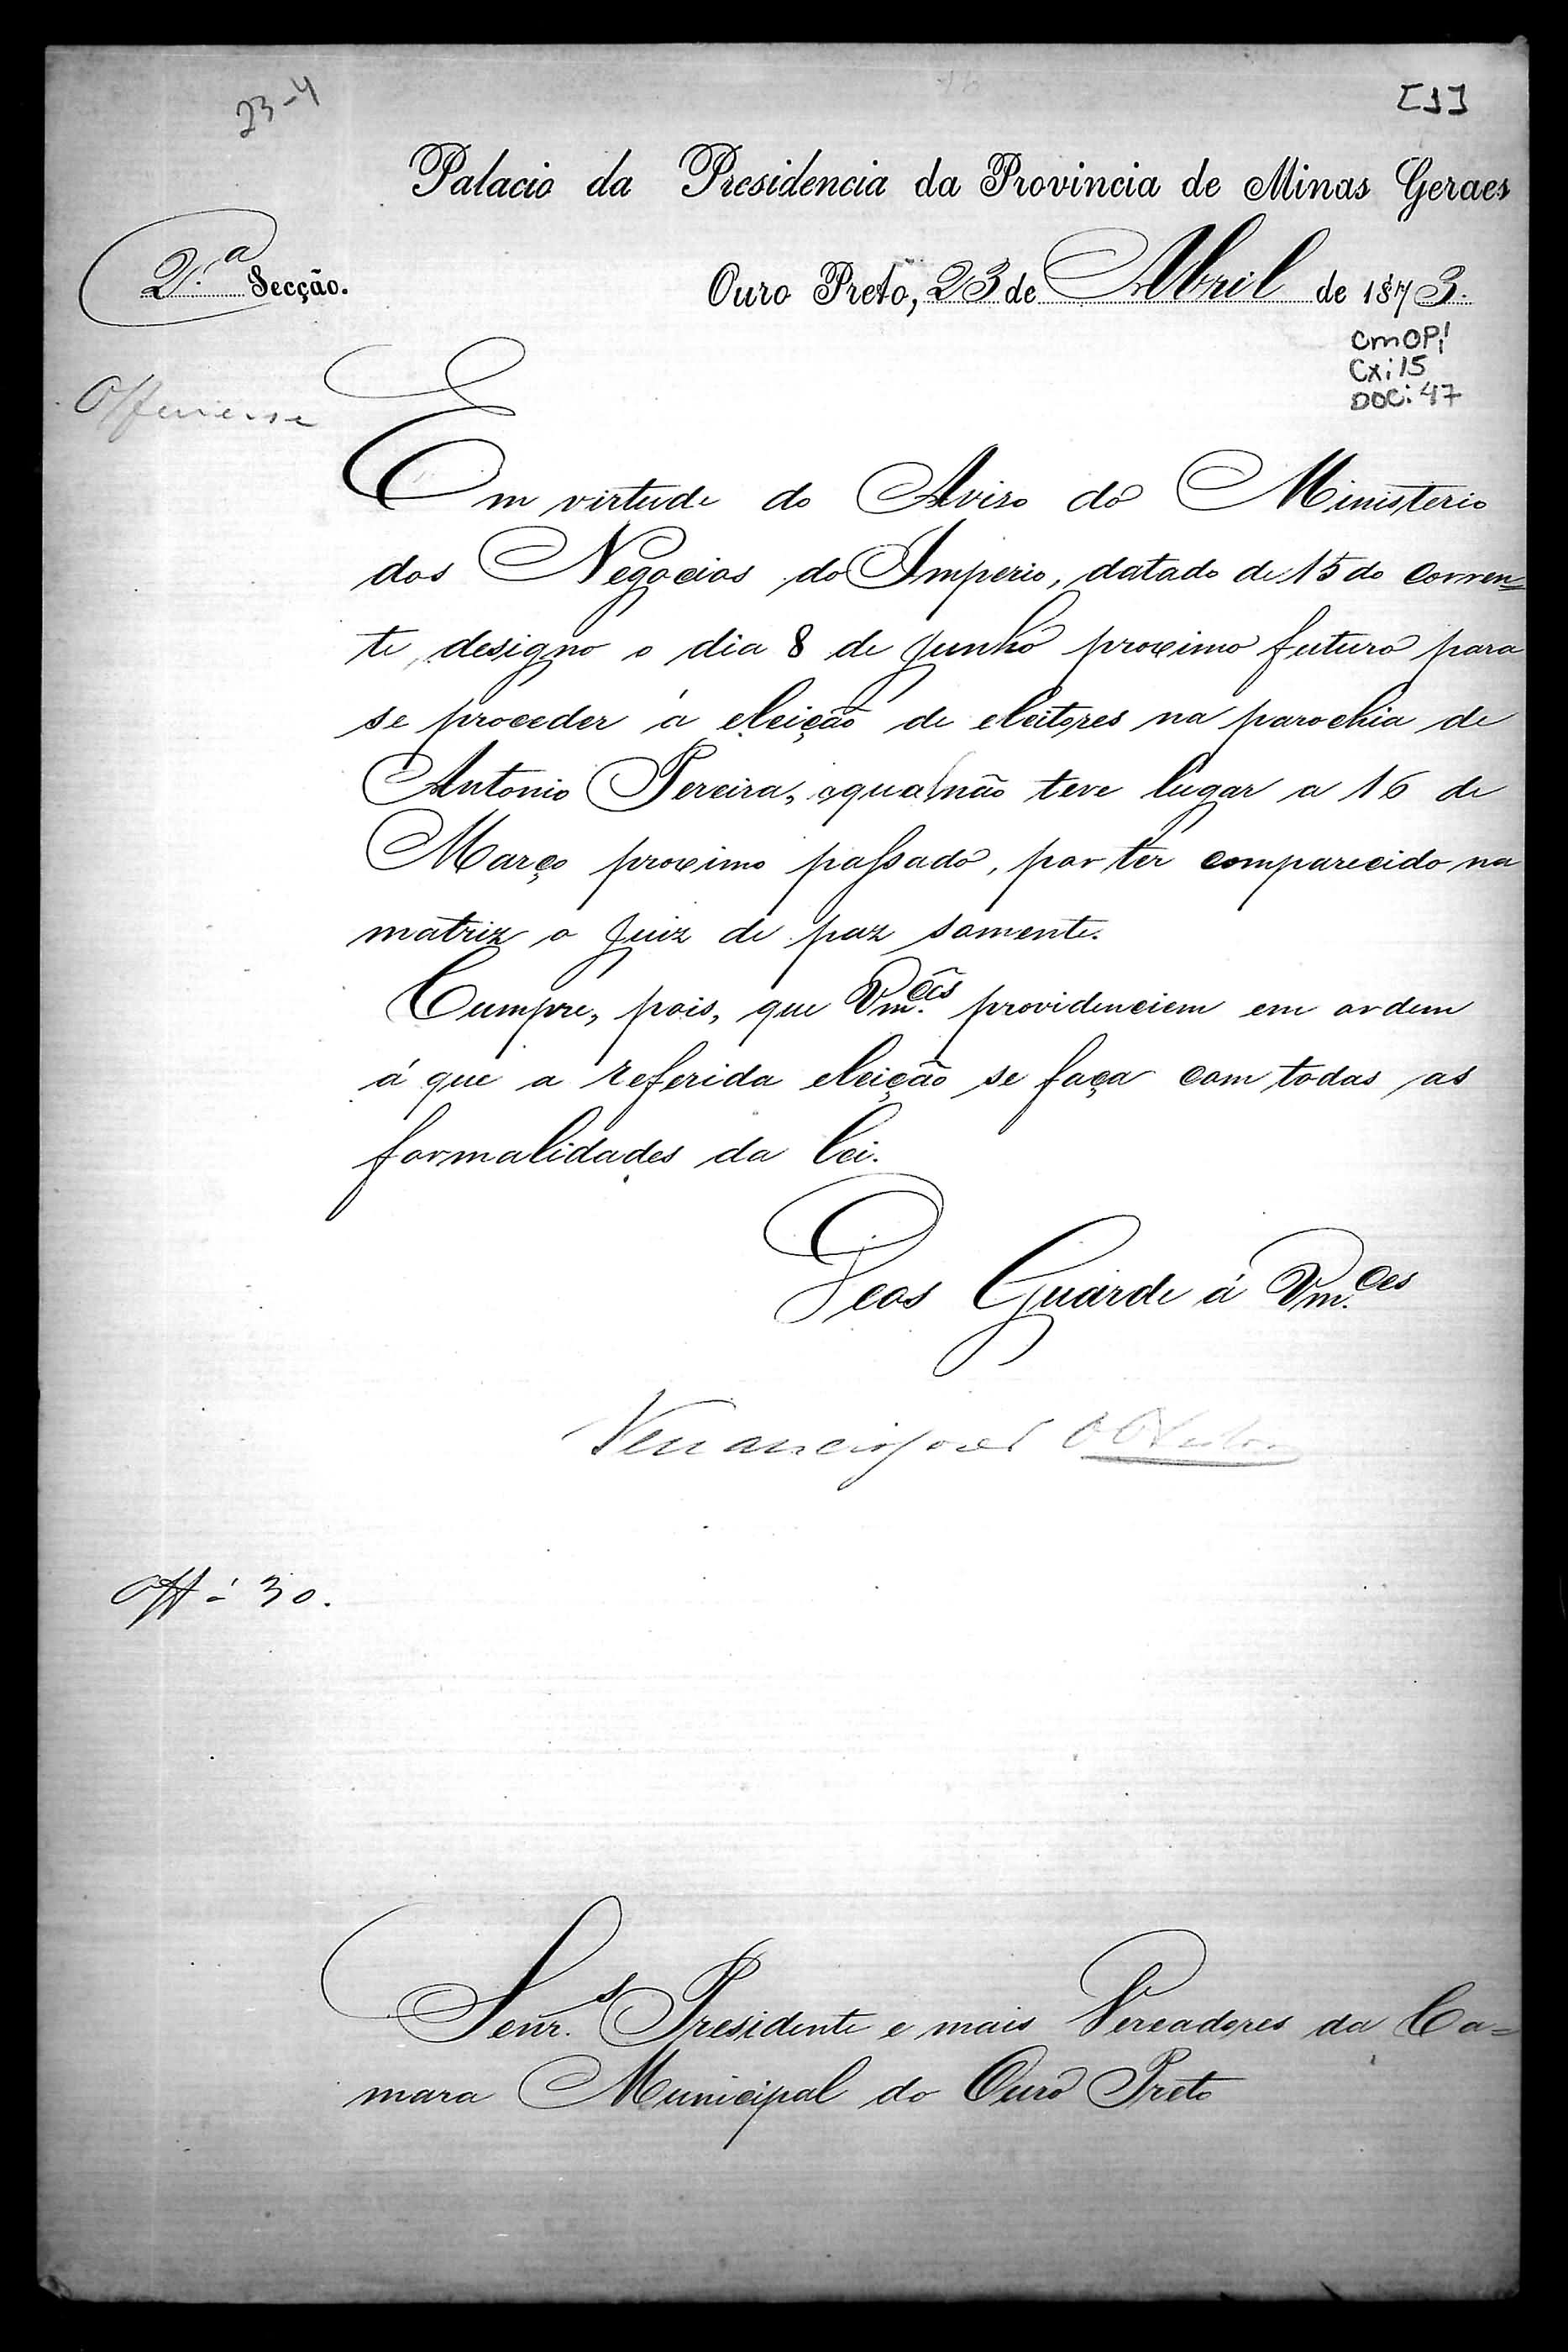 23-4
[1]
Palacio da Presidencia da Provincia de Minas Geraes
2.ª Secção.
Ouro Preto, 23 de Abril de 1873.
CmOP;
Cx: 15
DOC: 47
Em virtude do Aviso do Ministerio
dos Negocios do Imperio, datado de 15 do corren=
te, designo o dia 8 de Junho proximo futuro para
se proceder á eleição de eleitores na parochia de
Antonio Pereira, a qual não teve lugar a 16 de
Março proximo passado, por ter comparecido na
matriz o Juiz de paz somente.
Cumpre, pois, que Vm.cês providenciem em ordem
á que a referida eleição se faça com todas as
formalidades da lei.
Deos Guarde á Vm.ces
Venancio José
Off á 30.
Senr.s Presidente e mais Vereadores da Ca=
mara Municipal do Ouro Preto